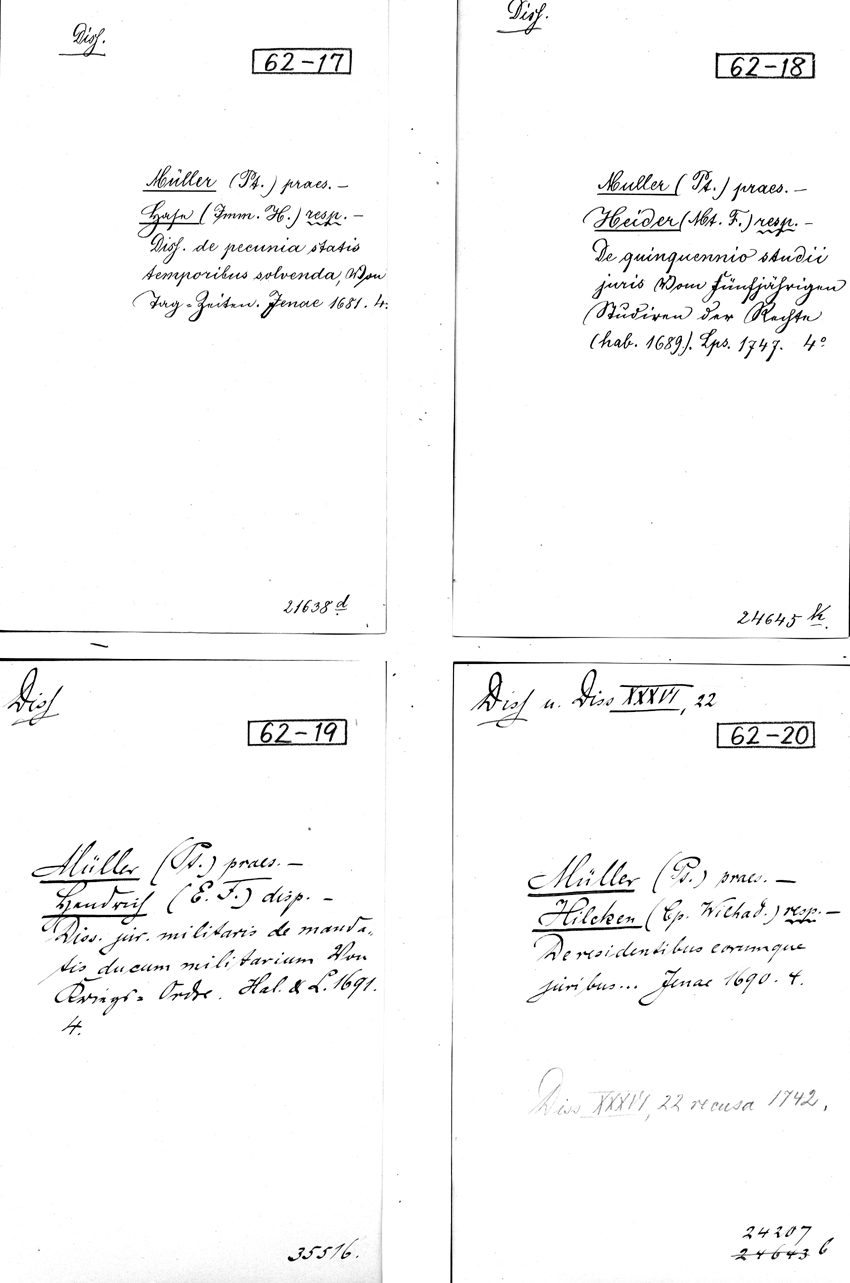 Diss.
62-17
Müller (Pt.) praes. –
Hase (Imm. H.) resp. –
Diss. de pecunia statis
temporibus solvenda, Von
Tag-Zeiten. Jenae 1681. 4.
21638 d
Diss.
62-18
Muller (Pt.) praes. –
Heider (Mt. F.) resp. –
De quinquennio studii
juris Vom Fünfjährigen
Studiren der Rechte
(hab. 1689). Lps. 1747. 4°
24645 k.
Diss
62-19
Müller (Pt.) praes. –
Hendrich (E. F.) disp. –
Diss. jur. militaris de manda-
tis ducum militarium Von
Kriegs-Ordre. Hal. & L. 1691.
4.
35516.
Diss u. Diss XXXVI, 22
62-20
Müller (Pt.) praes. –
Hilcken (Cp. Wilhad.) resp. –
De residentibus eorumque
juribus... Jenae 1690. 4.
Diss XXXVI, 22 recusa 1742.
24207
24643 b